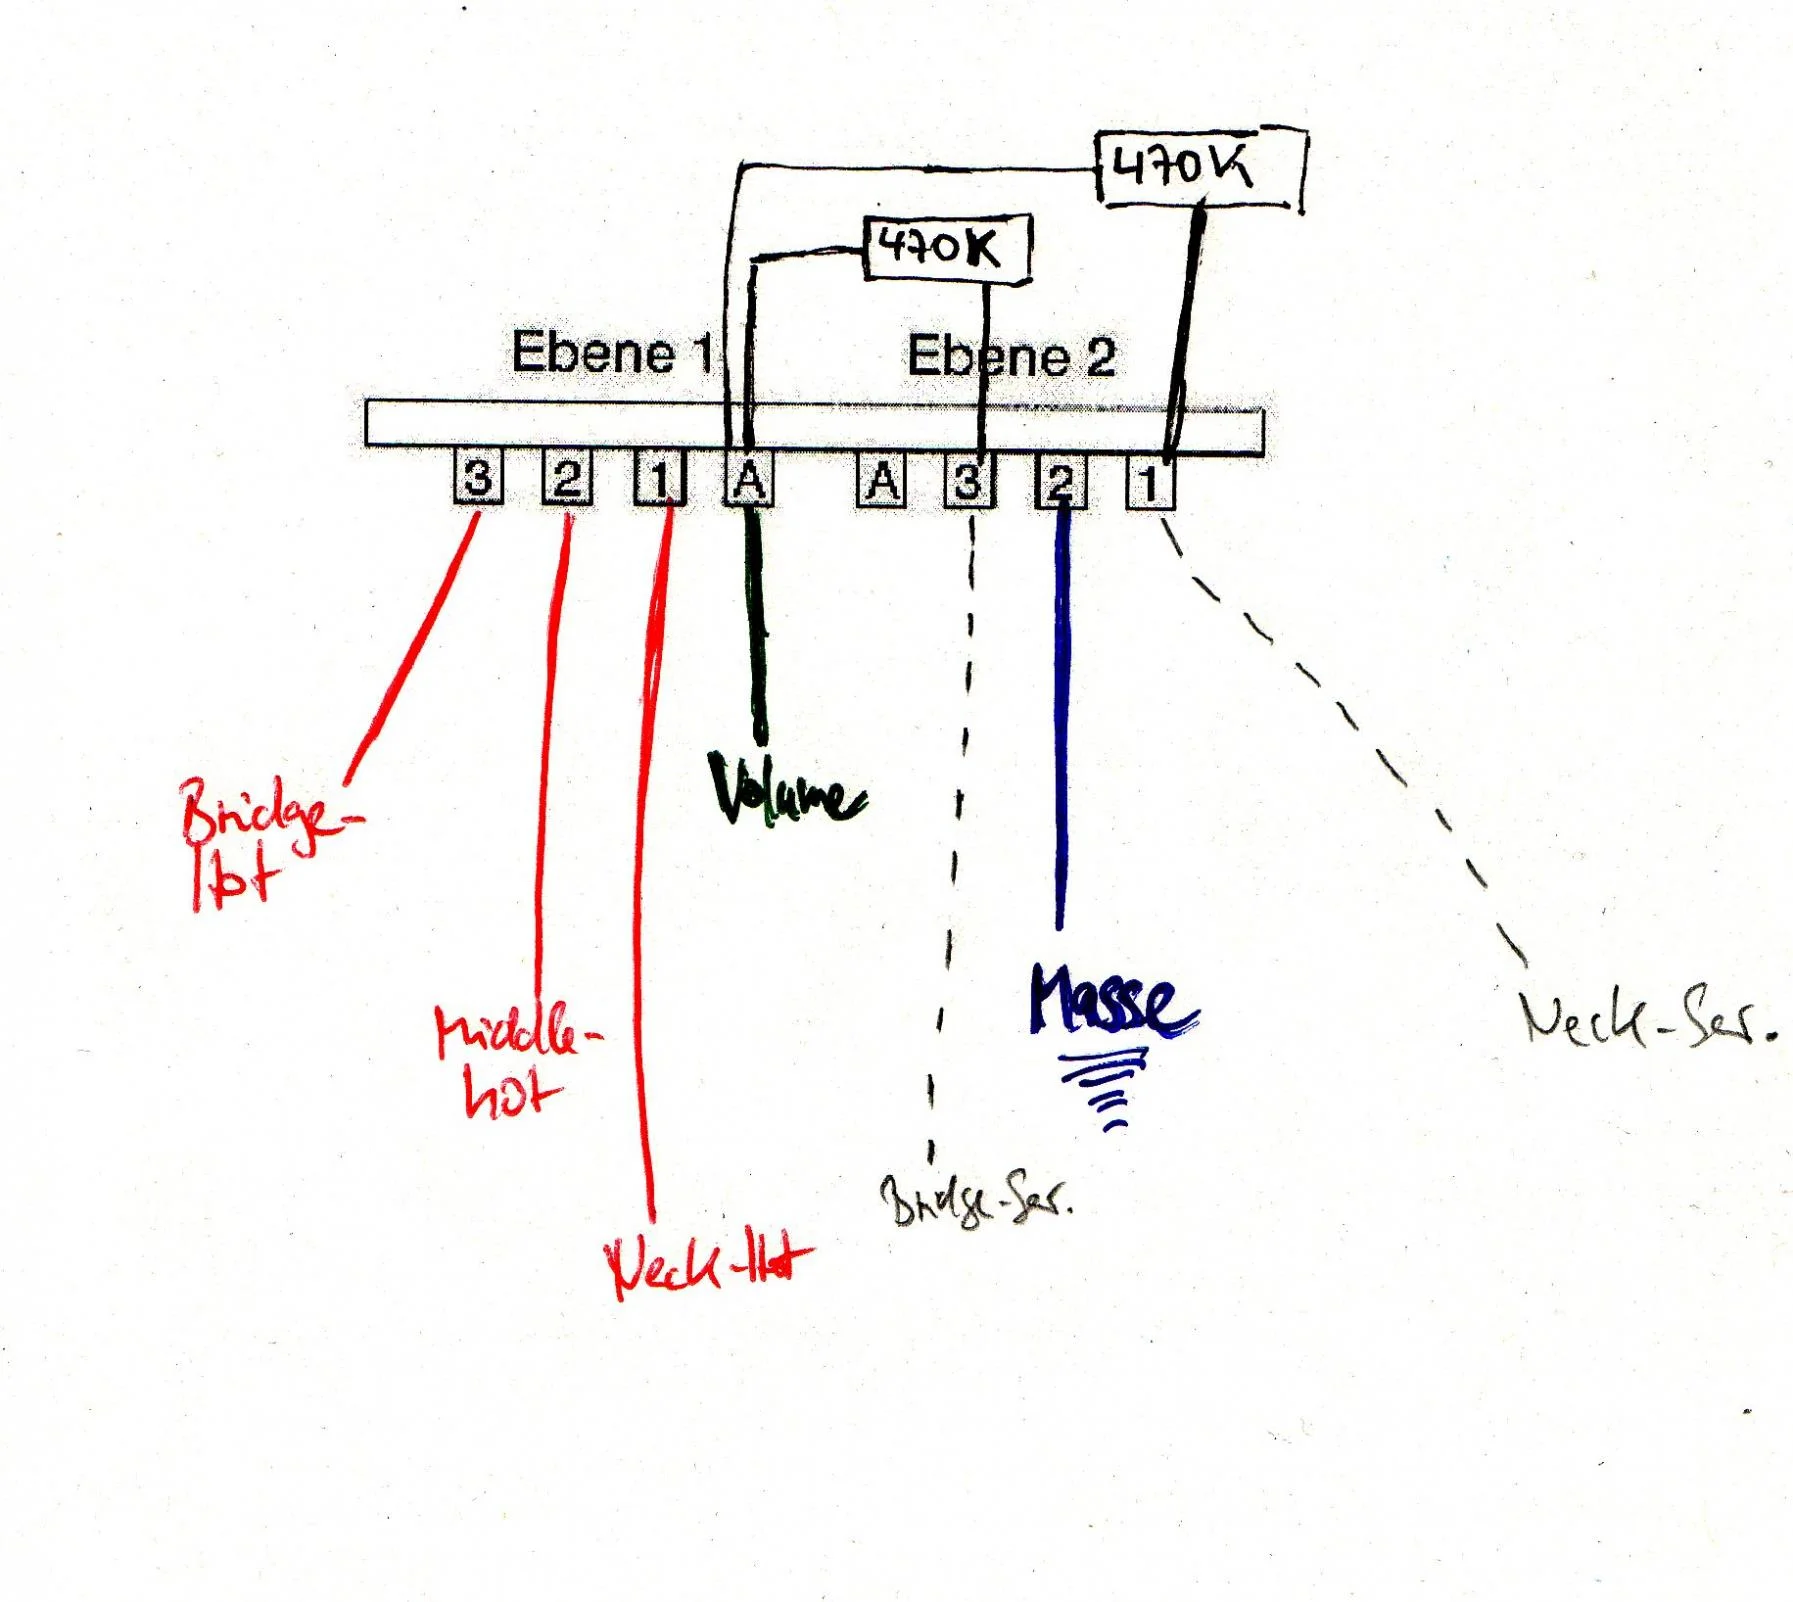 470K
470K
Ebene 1 Ebene 2
3 2 1 A A 3 2 1
Bridge-
Hot
Volume
Middle-
hot
Masse
Neck-Ser.
Bridge-Ser.
Neck-Hot